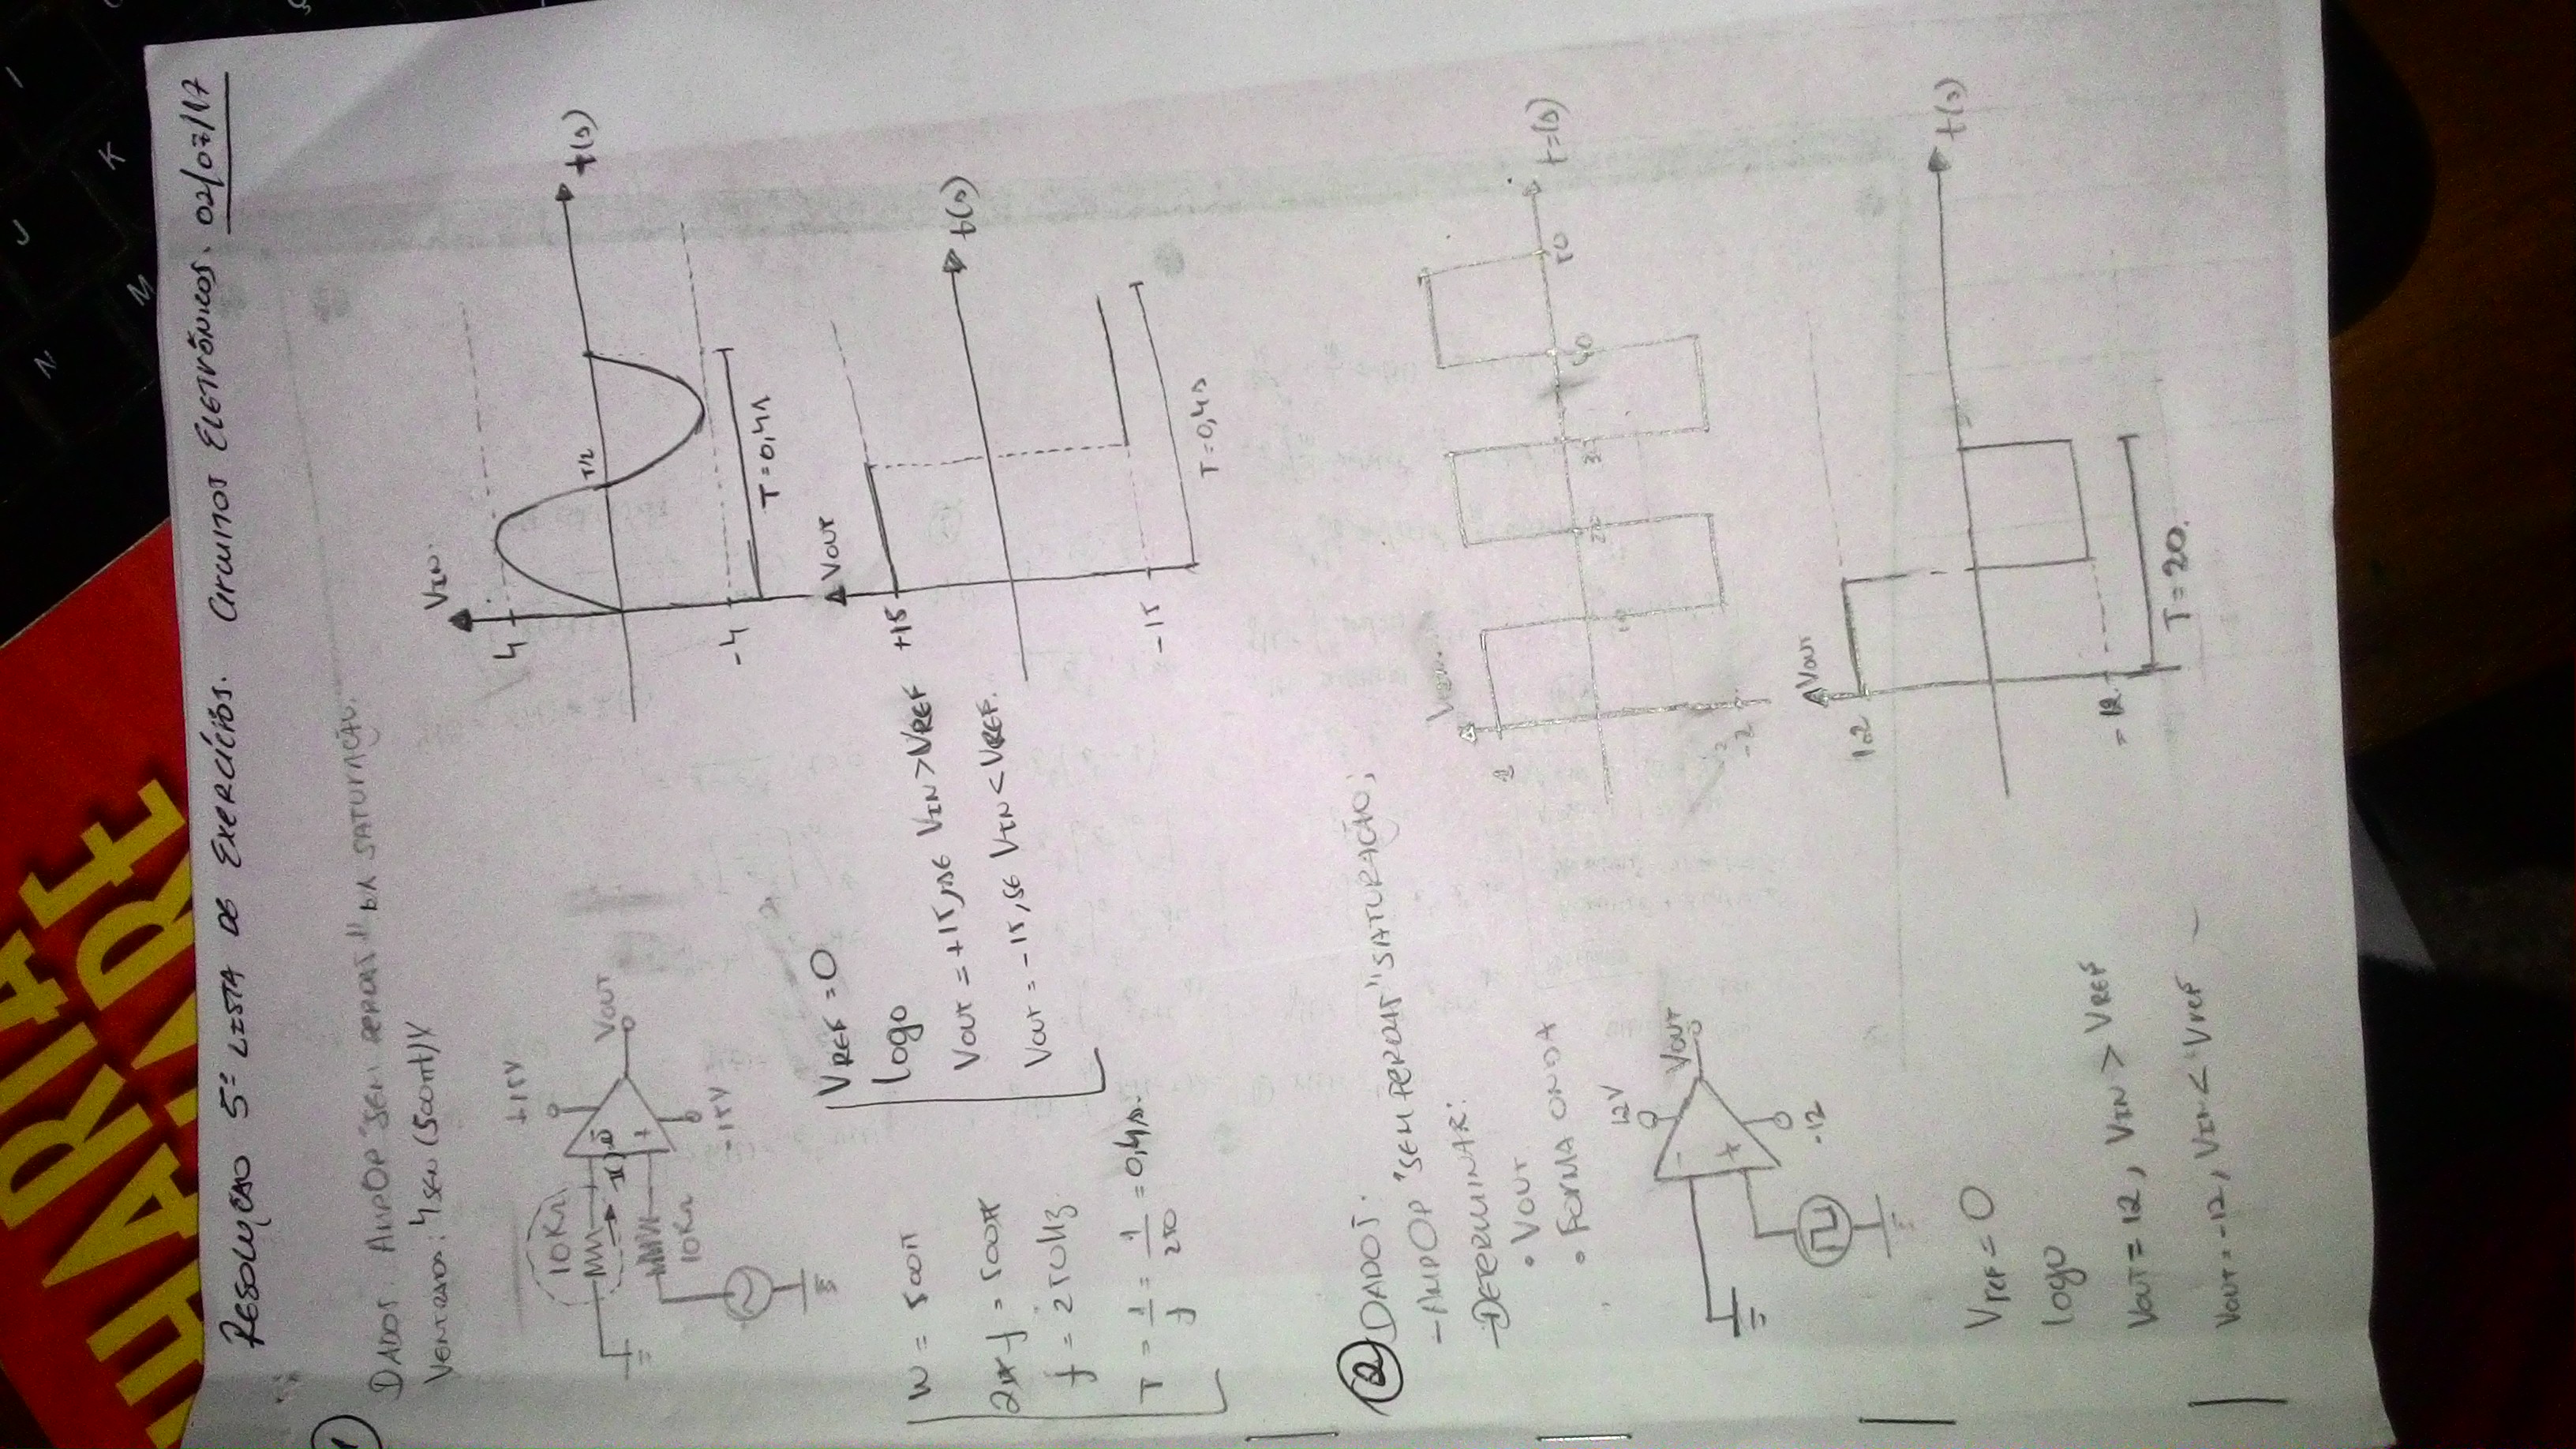 NHARIA
WARE
N
J
I
K
M
RESOLUÇÃO 5ª LISTA DE EXERCÍCIOS. CIRCUITOS ELETRÔNICOS. 02/07/17
1
DADOS: AMPOP "SEM PERDAS" DA SATURAÇÃO.
VENTRADA: 4 SEN (500πt)V
+15V
10KΩ
-
+
VOUT
10KΩ
-15V
VIN.
4
T/2
t(s)
-4
T=0,4s
W = 500π
2πf = 500π
f = 250Hz
T = 1/f = 1/250 = 0,4s.
VREF = 0
logo
VOUT = +15, SE VIN > VREF
VOUT = -15, SE VIN < VREF.
VOUT
+15
t(s)
-15
T=0,4s
2 DADOS.
- AMPOP "SEM PERDAS" SATURAÇÃO;
- DETERMINAR:
• VOUT
• FORMA ONDA
12V
-
+
VOUT
-12
40
50
t=(s)
-2
VOUT
12
t(s)
-12
T=20.
Vref = 0
logo
VOUT = 12, VIN > VREF
VOUT = -12, VIN < Vref